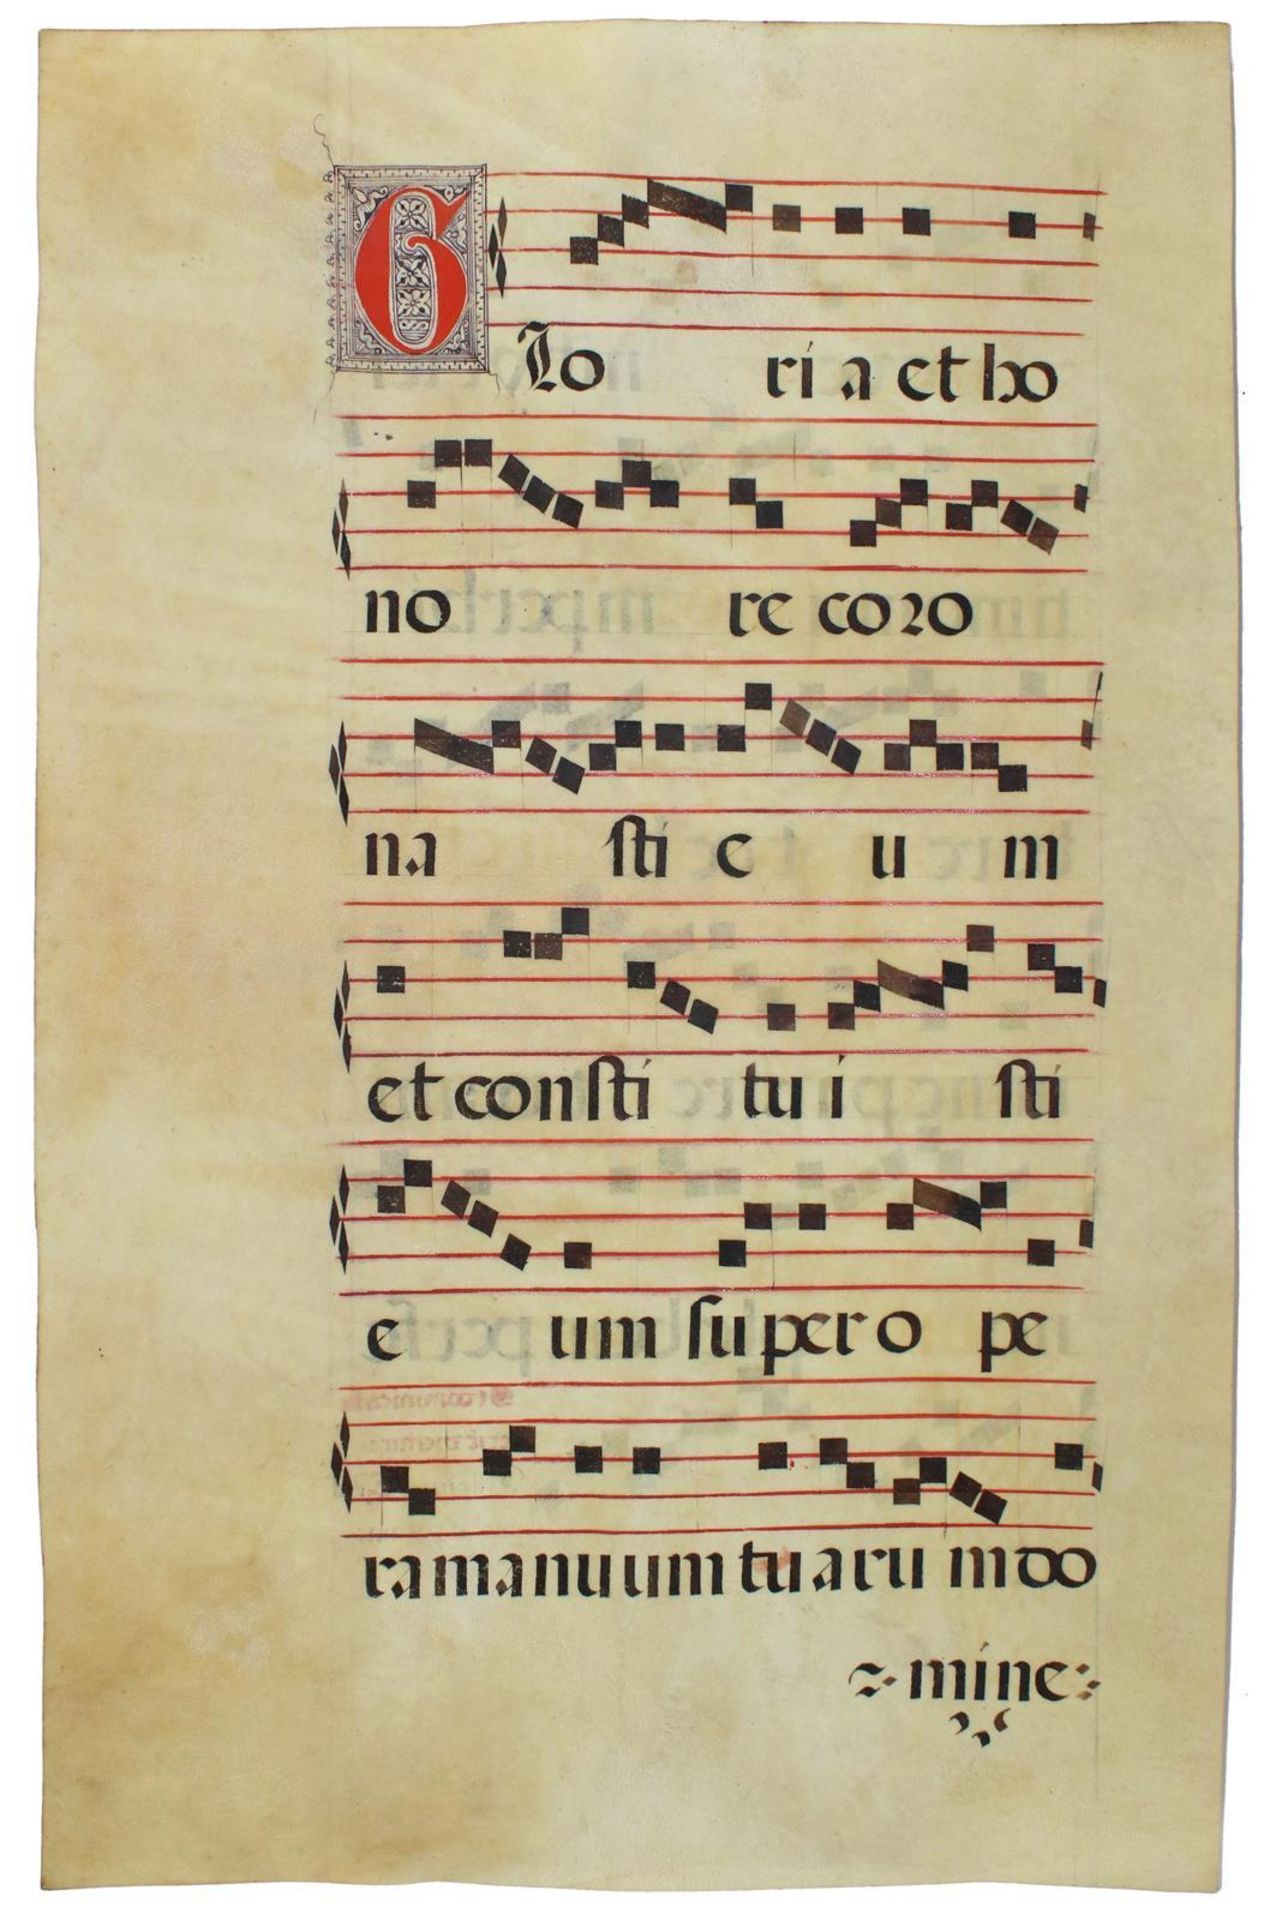 Glo ri a et ho
no re co ro
na sti e u m
et consti tu i sti
e um super o pe
ra manuum tuaru m do
mine